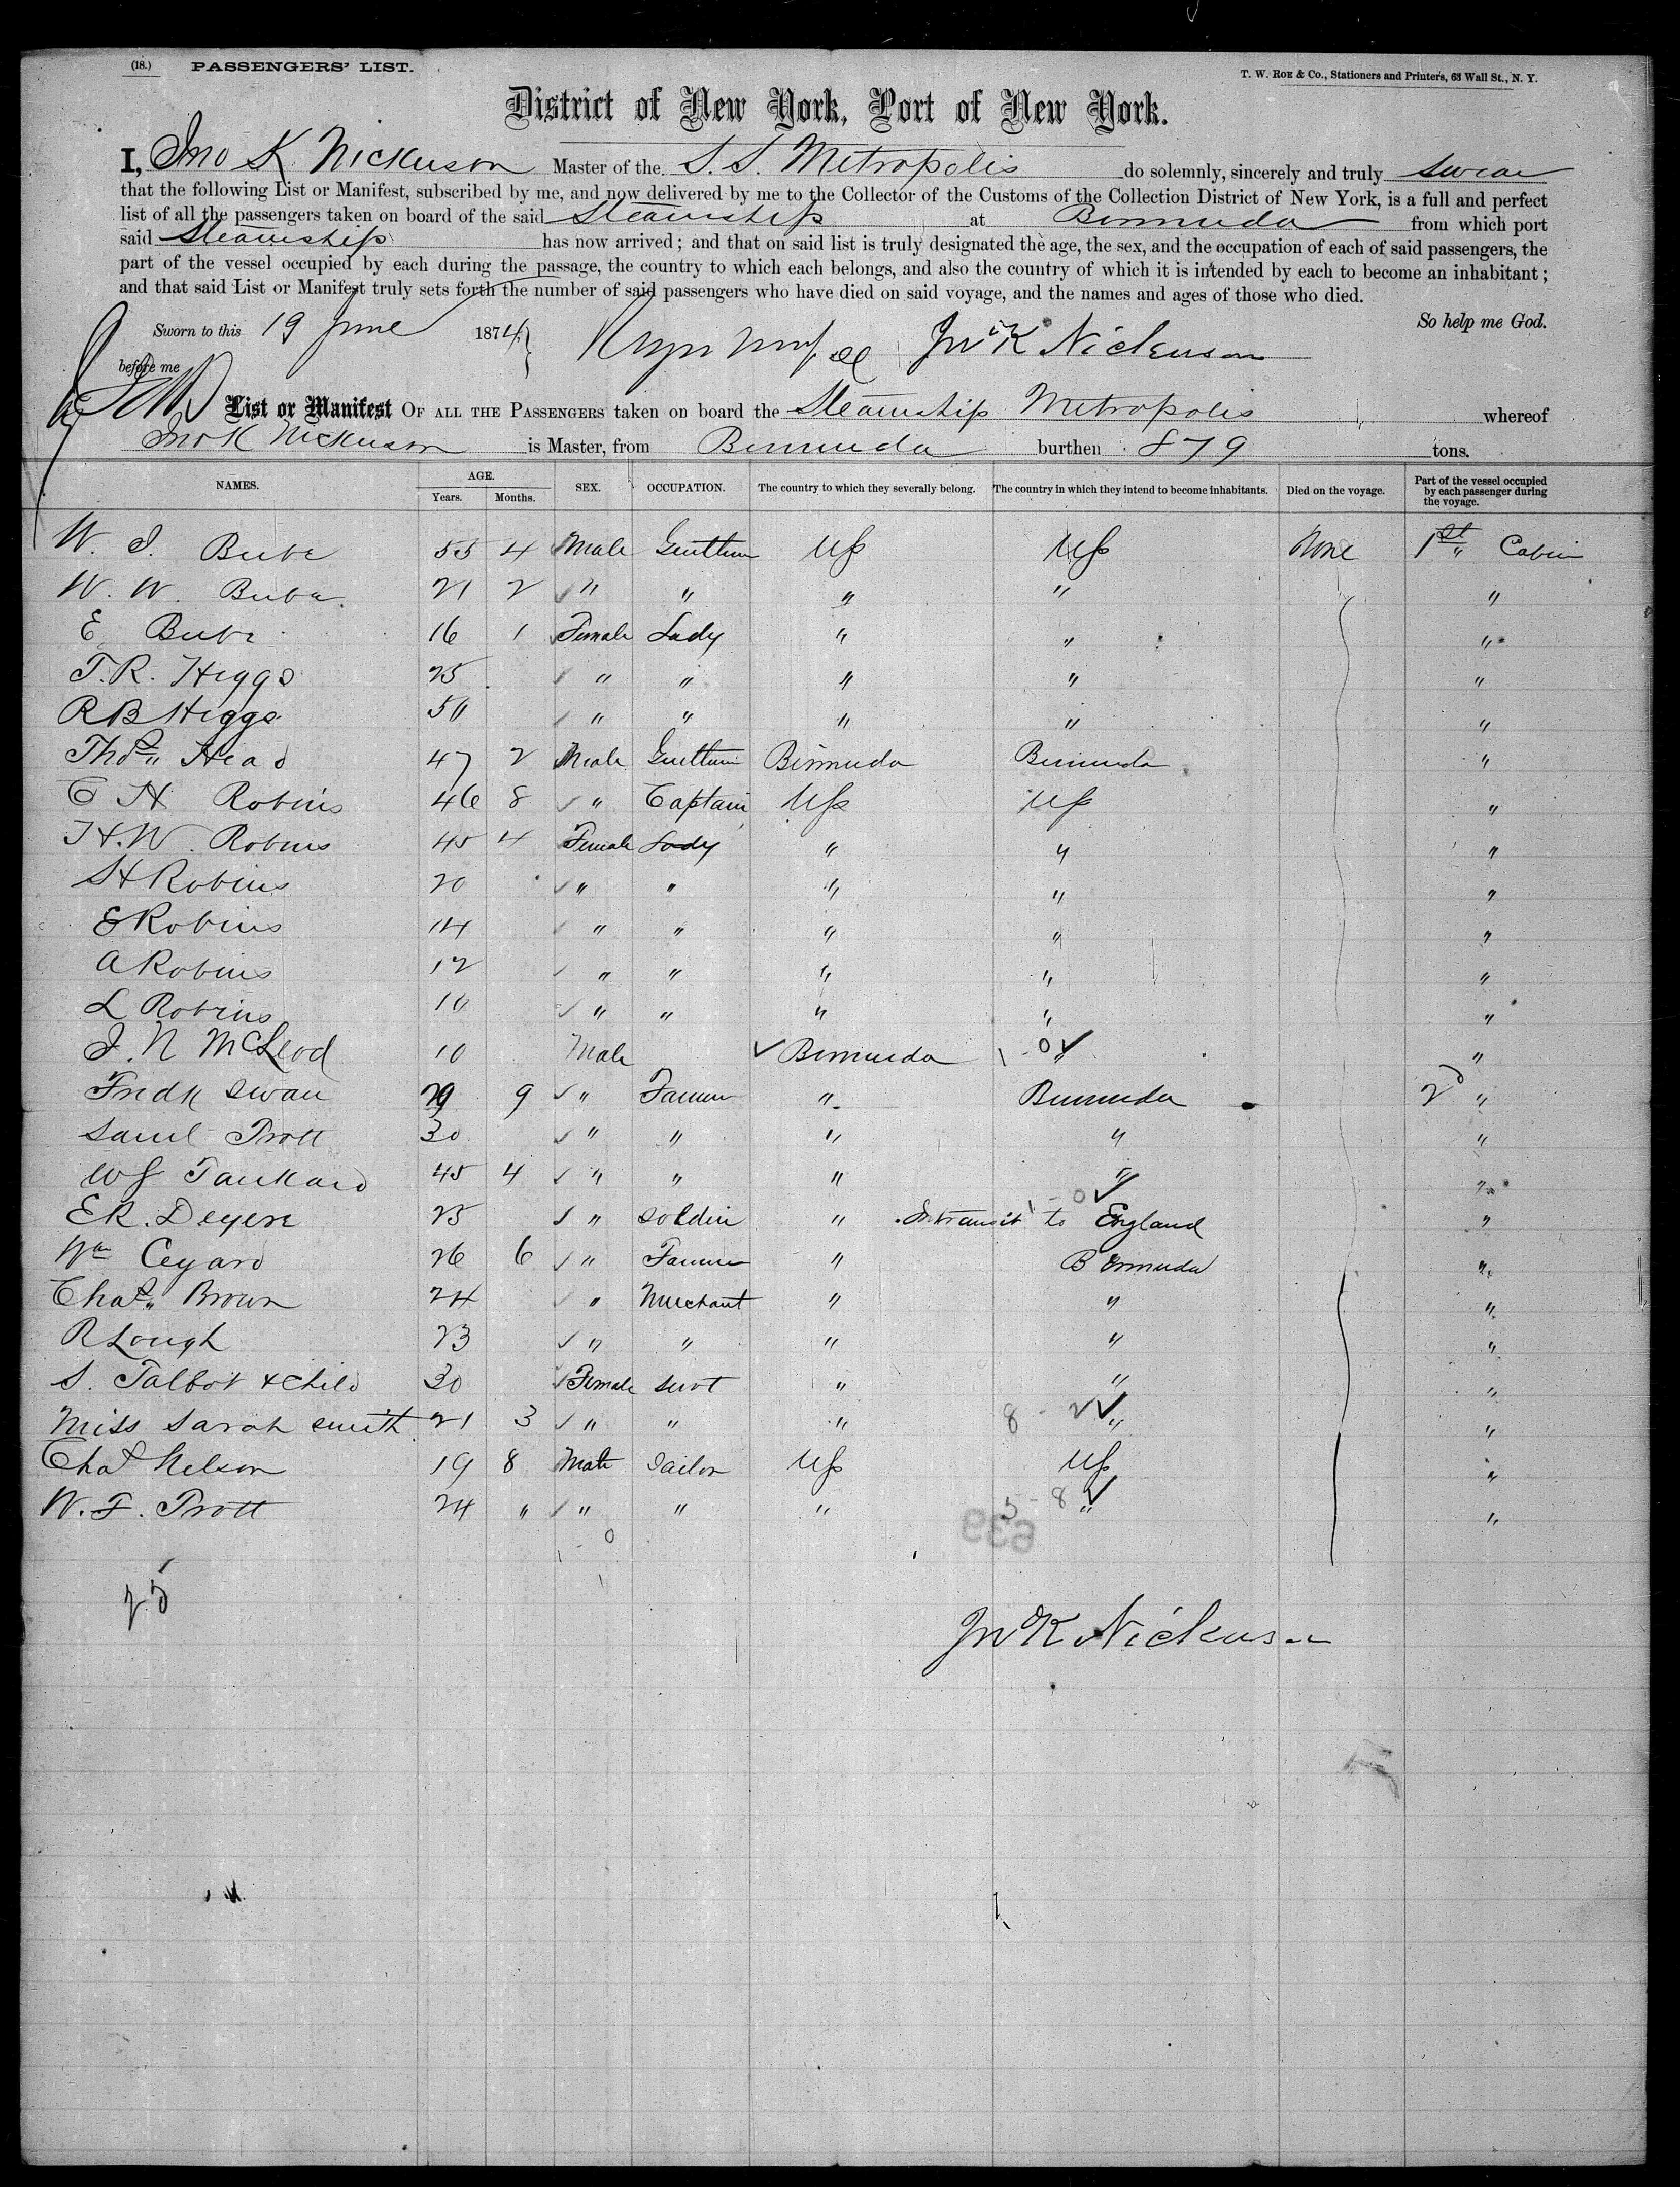 (18.) PASSENGERS' LIST.
T. W. ROE & Co., Stationers and Printers, 63 Wall St., N. Y.
District of New York, Port of New York.
I, Jno K Nickerson Master of the S. S. Metropolis do solemnly, sincerely and truly swear
that the following List or Manifest, subscribed by me, and now delivered by me to the Collector of the Customs of the Collection District of New York, is a full and perfect
list of all the passengers taken on board of the said Steamship at Bermuda from which port
said Steamship has now arrived; and that on said list is truly designated the age, the sex, and the occupation of each of said passengers, the
part of the vessel occupied by each during the passage, the country to which each belongs, and also the country of which it is intended by each to become an inhabitant;
and that said List or Manifest truly sets forth the number of said passengers who have died on said voyage, and the names and ages of those who died.
So help me God.
Sworn to this 19 June 1874 } Jno K Nickerson
before me
List or Manifest OF ALL THE PASSENGERS taken on board the Steamship Metropolis whereof
Jno K Nickerson is Master, from Bermuda burthen 879 tons.
NAMES. AGE. Years. Months. SEX. OCCUPATION. The country to which they severally belong. The country in which they intend to become inhabitants. Died on the voyage. Part of the vessel occupied by each passenger during the voyage.
55 4 Male Gentlem US US None 1st " Cabin
W. W. 21 2 " " " " "
E 16 1 Female Lady " " "
T. R. Higgs 25 " " " " "
R B Higgs 50 " " " " "
Thos Head 47 2 Male Gentlem Bermuda Bermuda "
C H Robins 46 8 " Captain US US "
H. W. Robins 45 4 Female Lady " " "
S H Robins 20 " " " " "
E Robins 14 " " " " "
A Robins 12 " " " " "
L Robins 10 " " " " "
J. N McLeod 10 Male Bermuda 1 - 0 " "
Fredk Swan 29 9 " Farmer " Bermuda 2d "
Saml Trott 30 " " " " "
W J Tankard 45 4 " " " " "
E R. Deyere 25 " Soldier " In transit to England "
Wm Cegard 26 6 " Farmer " Bermuda "
Chas. Brown 24 " Merchant " " "
R Lough 23 " " " " "
S. Talbot & child 30 Female servt " " "
Miss Sarah Smith 21 3 " " " 8 - 2 " "
Chas Nelson 19 8 Male Sailor US US "
W. F. Trott 24 " " " " 5 - 8 " "
1 - 0
639
25
Jno K Nickerson